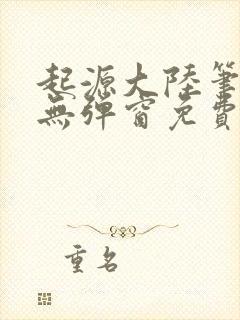 起源大陸筆
無彈窗免費
重名